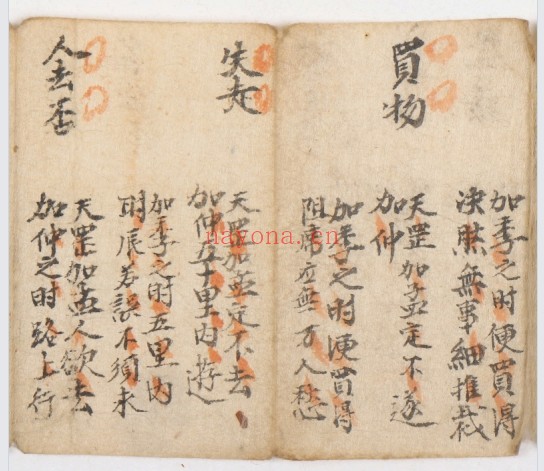 加季之时便買得
决然無事細推裁
買物
天罡加孟定不遂
加仲
加季之时便買得
阻隔並無万人愁
失走
天罡加孟定不去
加仲五十里内遊
加季之时五里内
时辰若誤不須求
人去否
天罡加孟人欲去
加仲之时路上行
nayona.cn